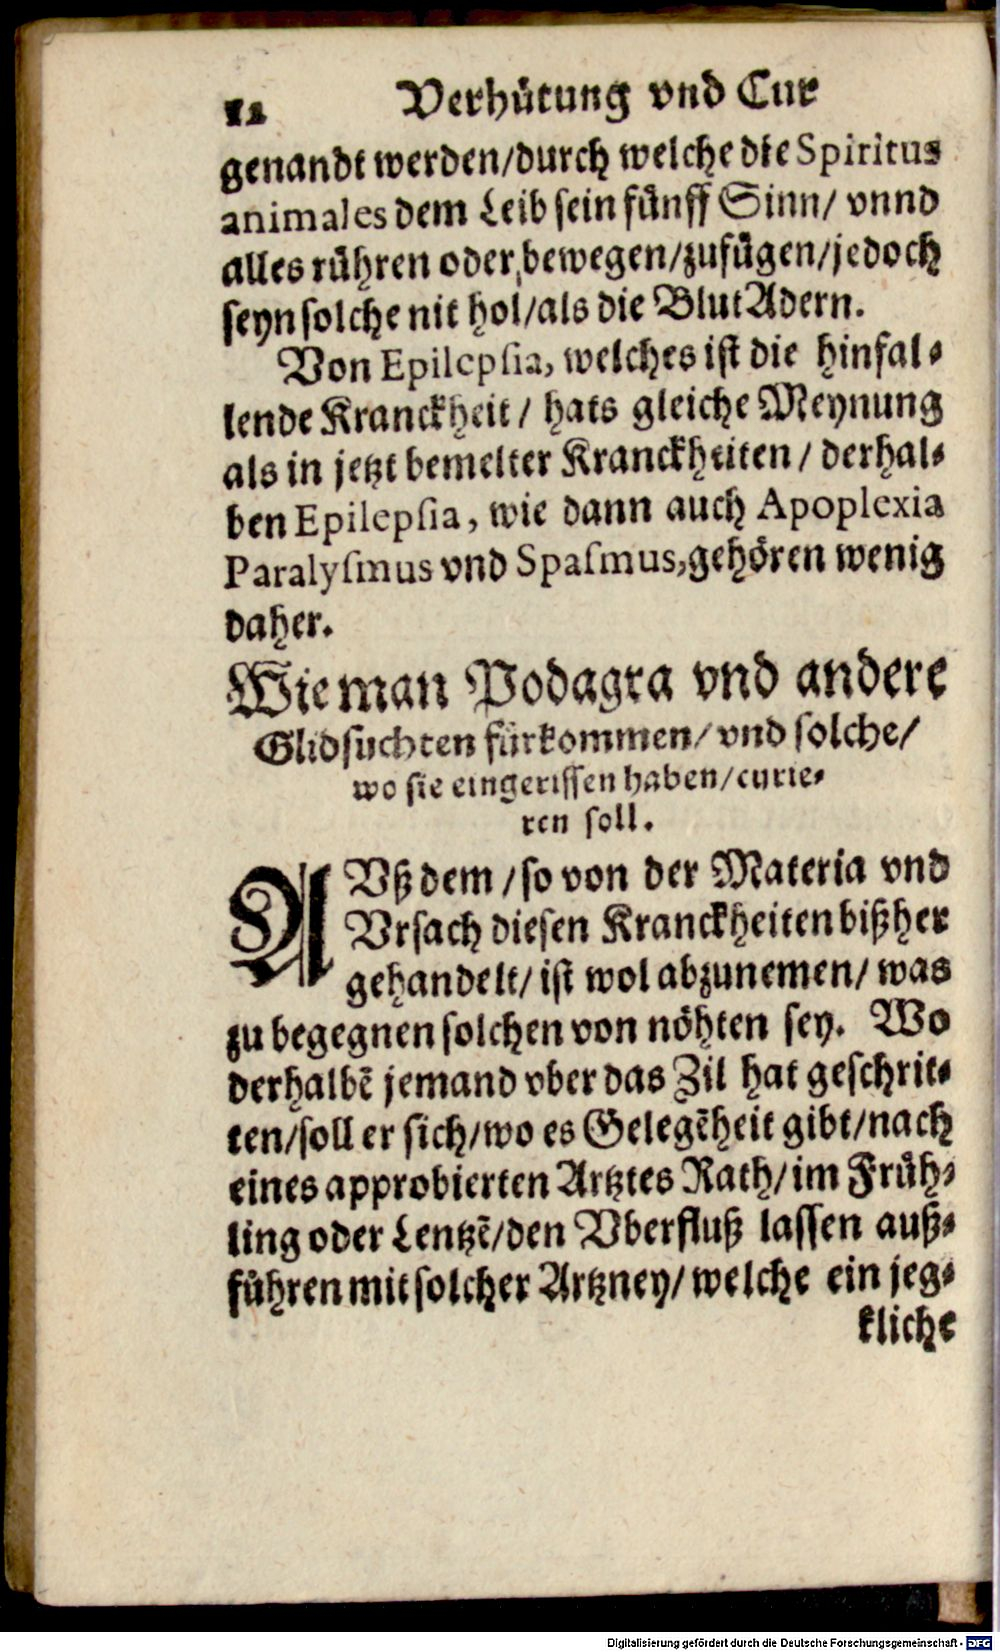 12 Verhütung vnd Cur
genandt werden/durch welche die Spiritus
animales dem Leib sein fünff Sinn/ vnnd
alles rühren oder bewegen/zufügen/jedoch
seyn solche nit hol/als die Blut Adern.
Von Epilepsia, welches ist die hinfal-
lende Kranckheit/ hats gleiche Meynung
als in jetzt bemelter Kranckheiten/ derhal-
ben Epilepsia, wie dann auch Apoplexia
Paralysmus vnd Spasmus, gehören wenig
daher.
Wie man Podagra vnd andere
Glidsuchten fürkommen/ vnd solche/
wo sie eingerissen haben/curie-
ren soll.
AVß dem/so von der Materia vnd
Vrsach diesen Kranckheiten bißher
gehandelt/ ist wol abzunemen/ was
zu begegnen solchen von nöhten sey. Wo
derhalbē jemand vber das Zil hat geschrit-
ten/soll er sich/wo es Gelegēheit gibt/nach
eines approbierten Artztes Rath/im Früh-
ling oder Lentzē/den Vberfluß lassen auß-
führen mit solcher Artzney/ welche ein jeg-
kliche
Digitalisierung gefördert durch die Deutsche Forschungsgemeinschaft - DFG